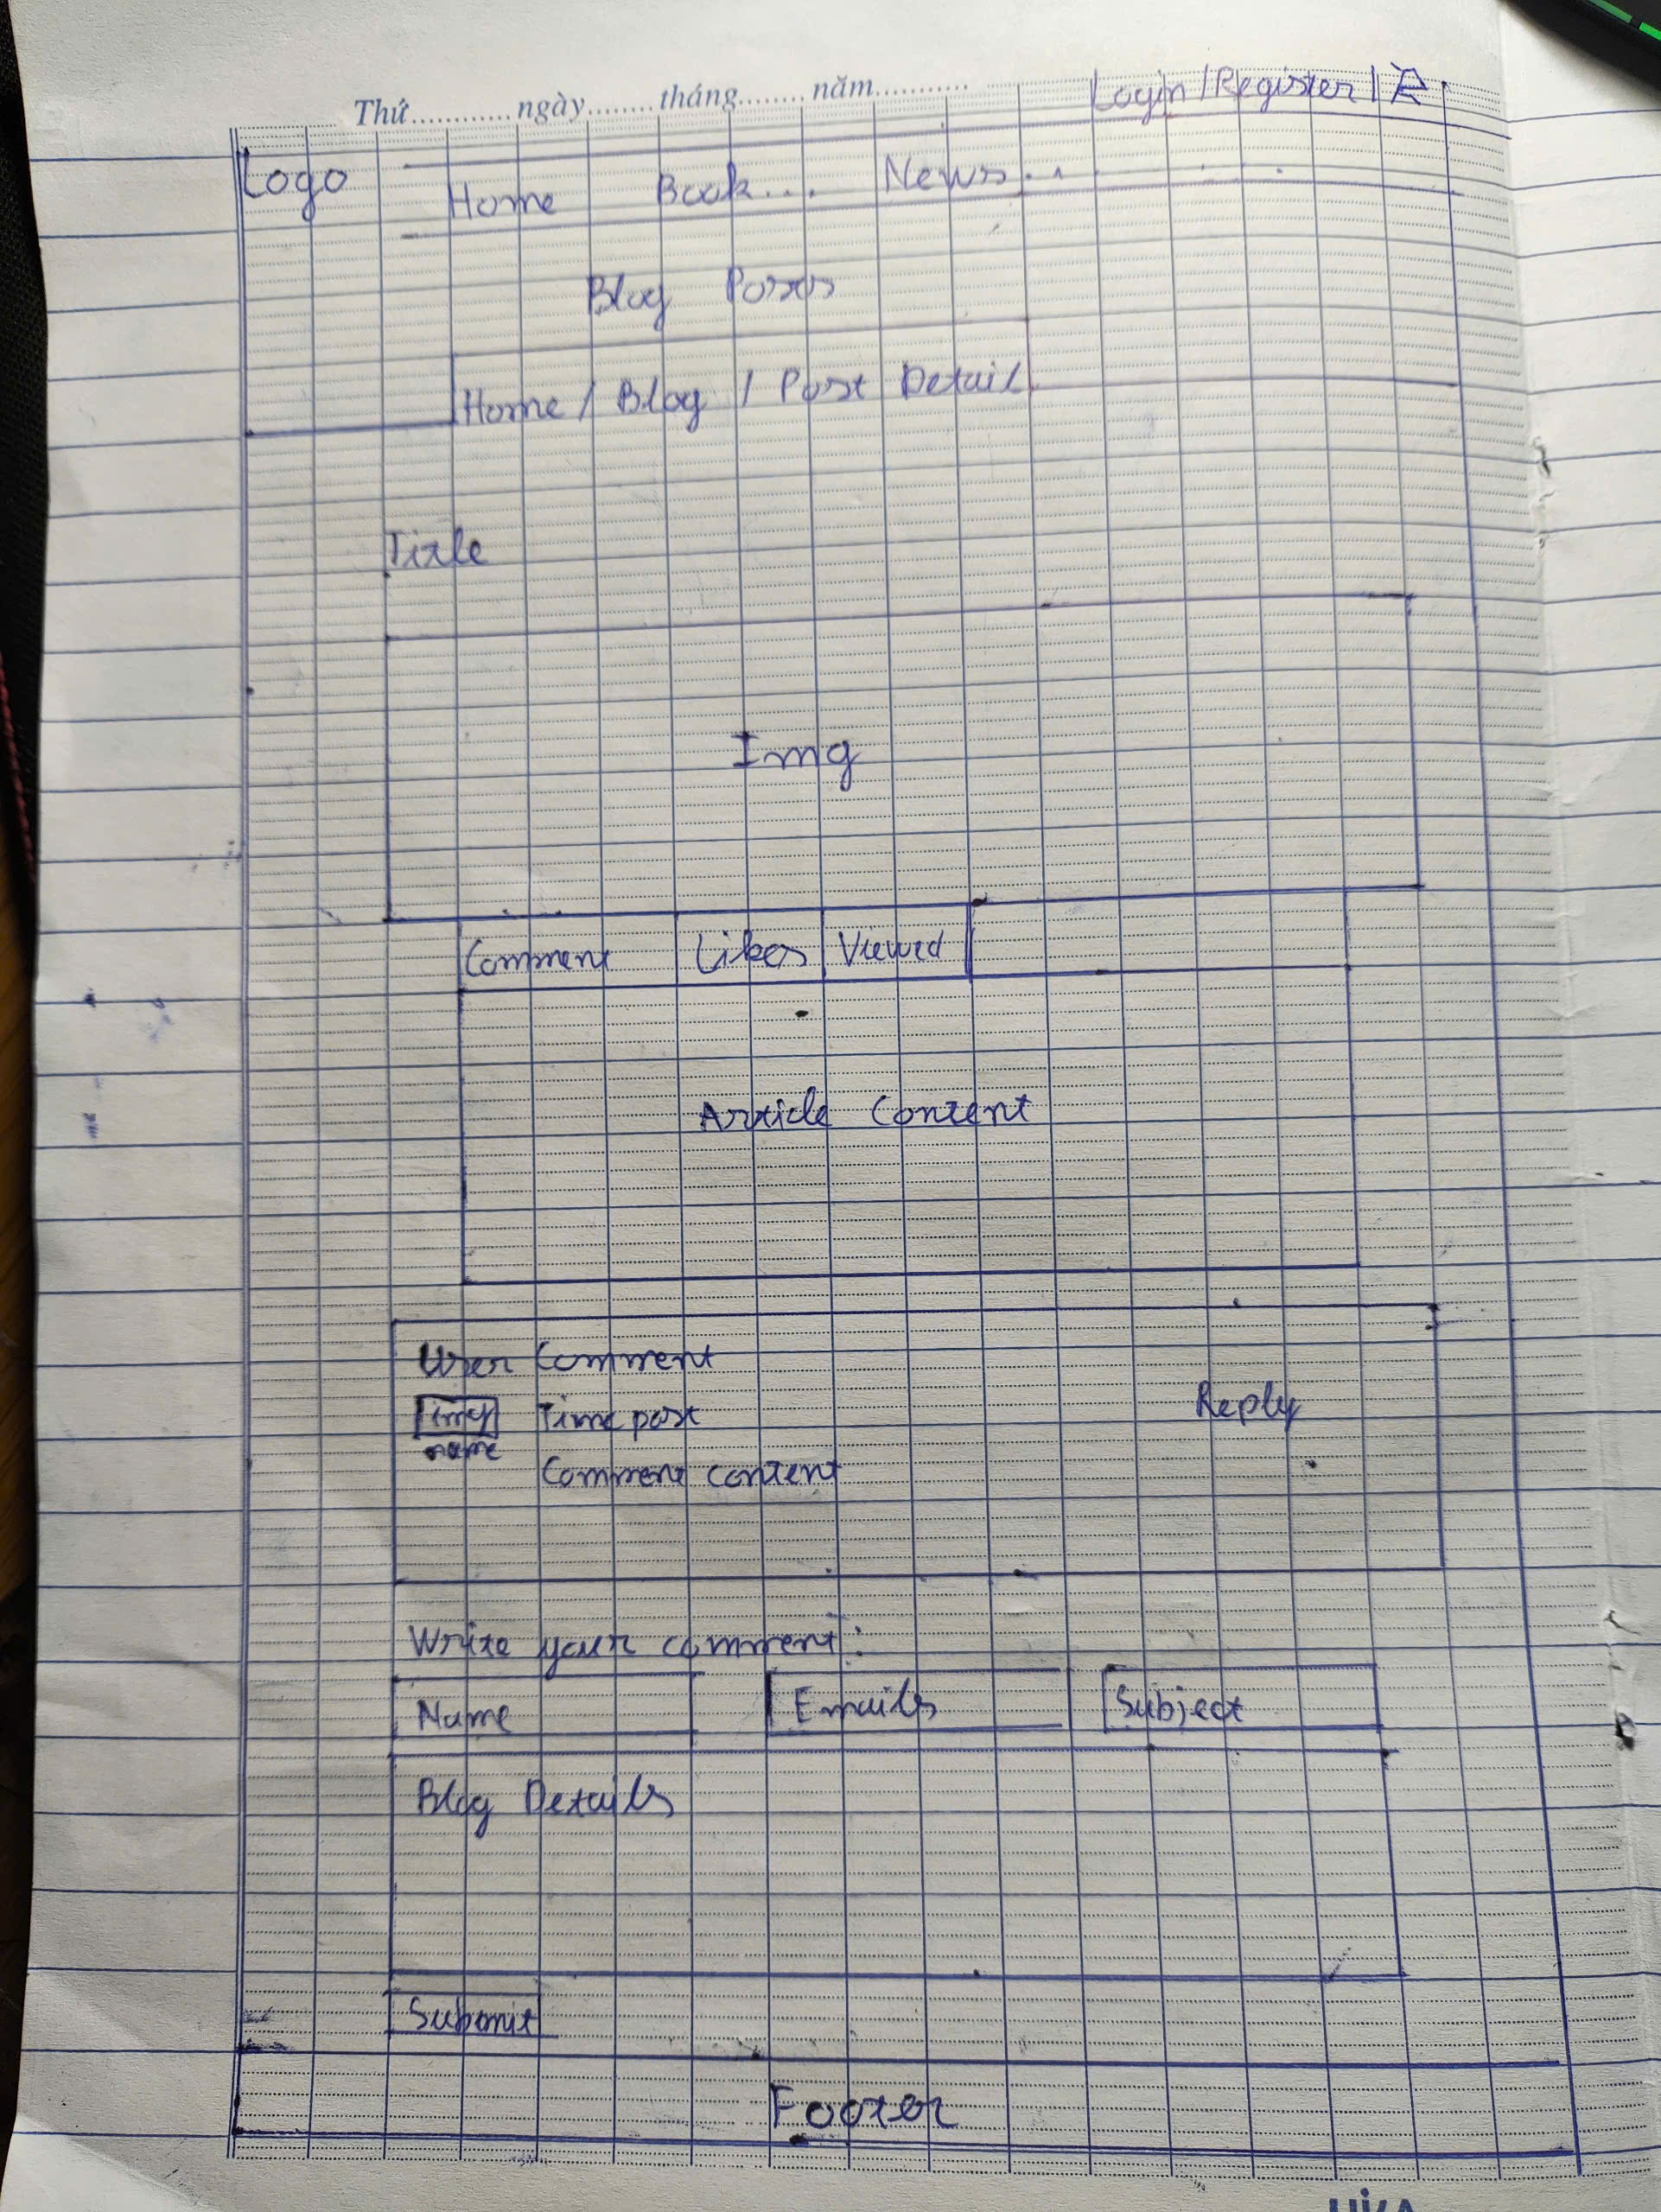 Thứ............ngày........tháng........năm...........
Login / Register /
Logo
Home Book... News...
Blog Posts
Home / Blog / Post Detail
Title
Img
Comment Likes Viewed
Article Content
User Comment
Img Time post Reply
name
Comment content
Write your comment:
Name Emails Subject
Blog Details
Submit
Footer